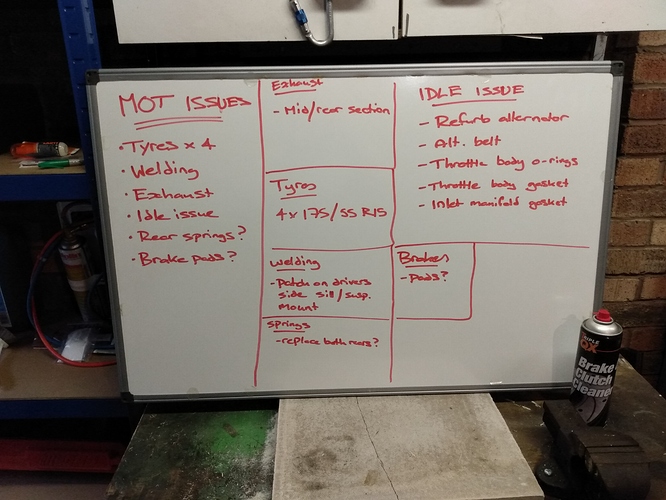 MOT ISSUES
• Tyres x 4
• Welding
• Exhaust
• Idle issue
• Rear springs?
• Brake pads?
Exhaust
- Mid/rear section
Tyres
4 x 175/55 R15
Welding
- Patch on drivers
side sill/susp.
mount
Springs
- replace both rears?
IDLE ISSUE
- Refurb alternator
- Alt. belt
- Throttle body o-rings
- Throttle body gasket
- Inlet manifold gasket
Brakes
- Pads?
Brake
Clutch
Cleaner